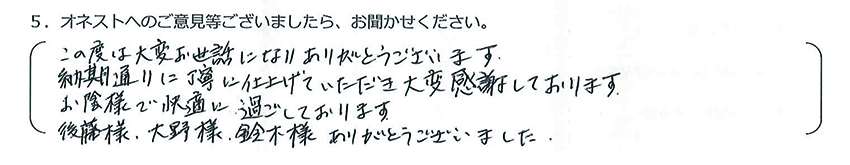 5．オネストへのご意見等ございましたら、お聞かせください。
この度は大変お世話になりありがとうございます.
納期通りに丁寧に仕上げていただき大変感謝しております.
お陰様で快適に過ごしております
後藤様、大野様、鈴木様 ありがとうございました.